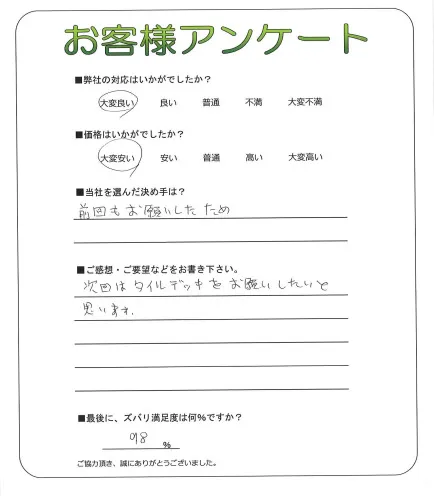 お客様アンケート
■弊社の対応はいかがでしたか？
大変良い 良い 普通 不満 大変不満
■価格はいかがでしたか？
大変安い 安い 普通 高い 大変高い
■当社を選んだ決め手は？
前回もお願いしたため
■ご感想・ご要望などをお書き下さい。
次回はタイルデッキをお願いしたいと
思います.
■最後に、ズバリ満足度は何%ですか？
98 %
ご協力頂き、誠にありがとうございました。